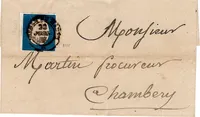 Monsieur
Martin procureur
Chambery